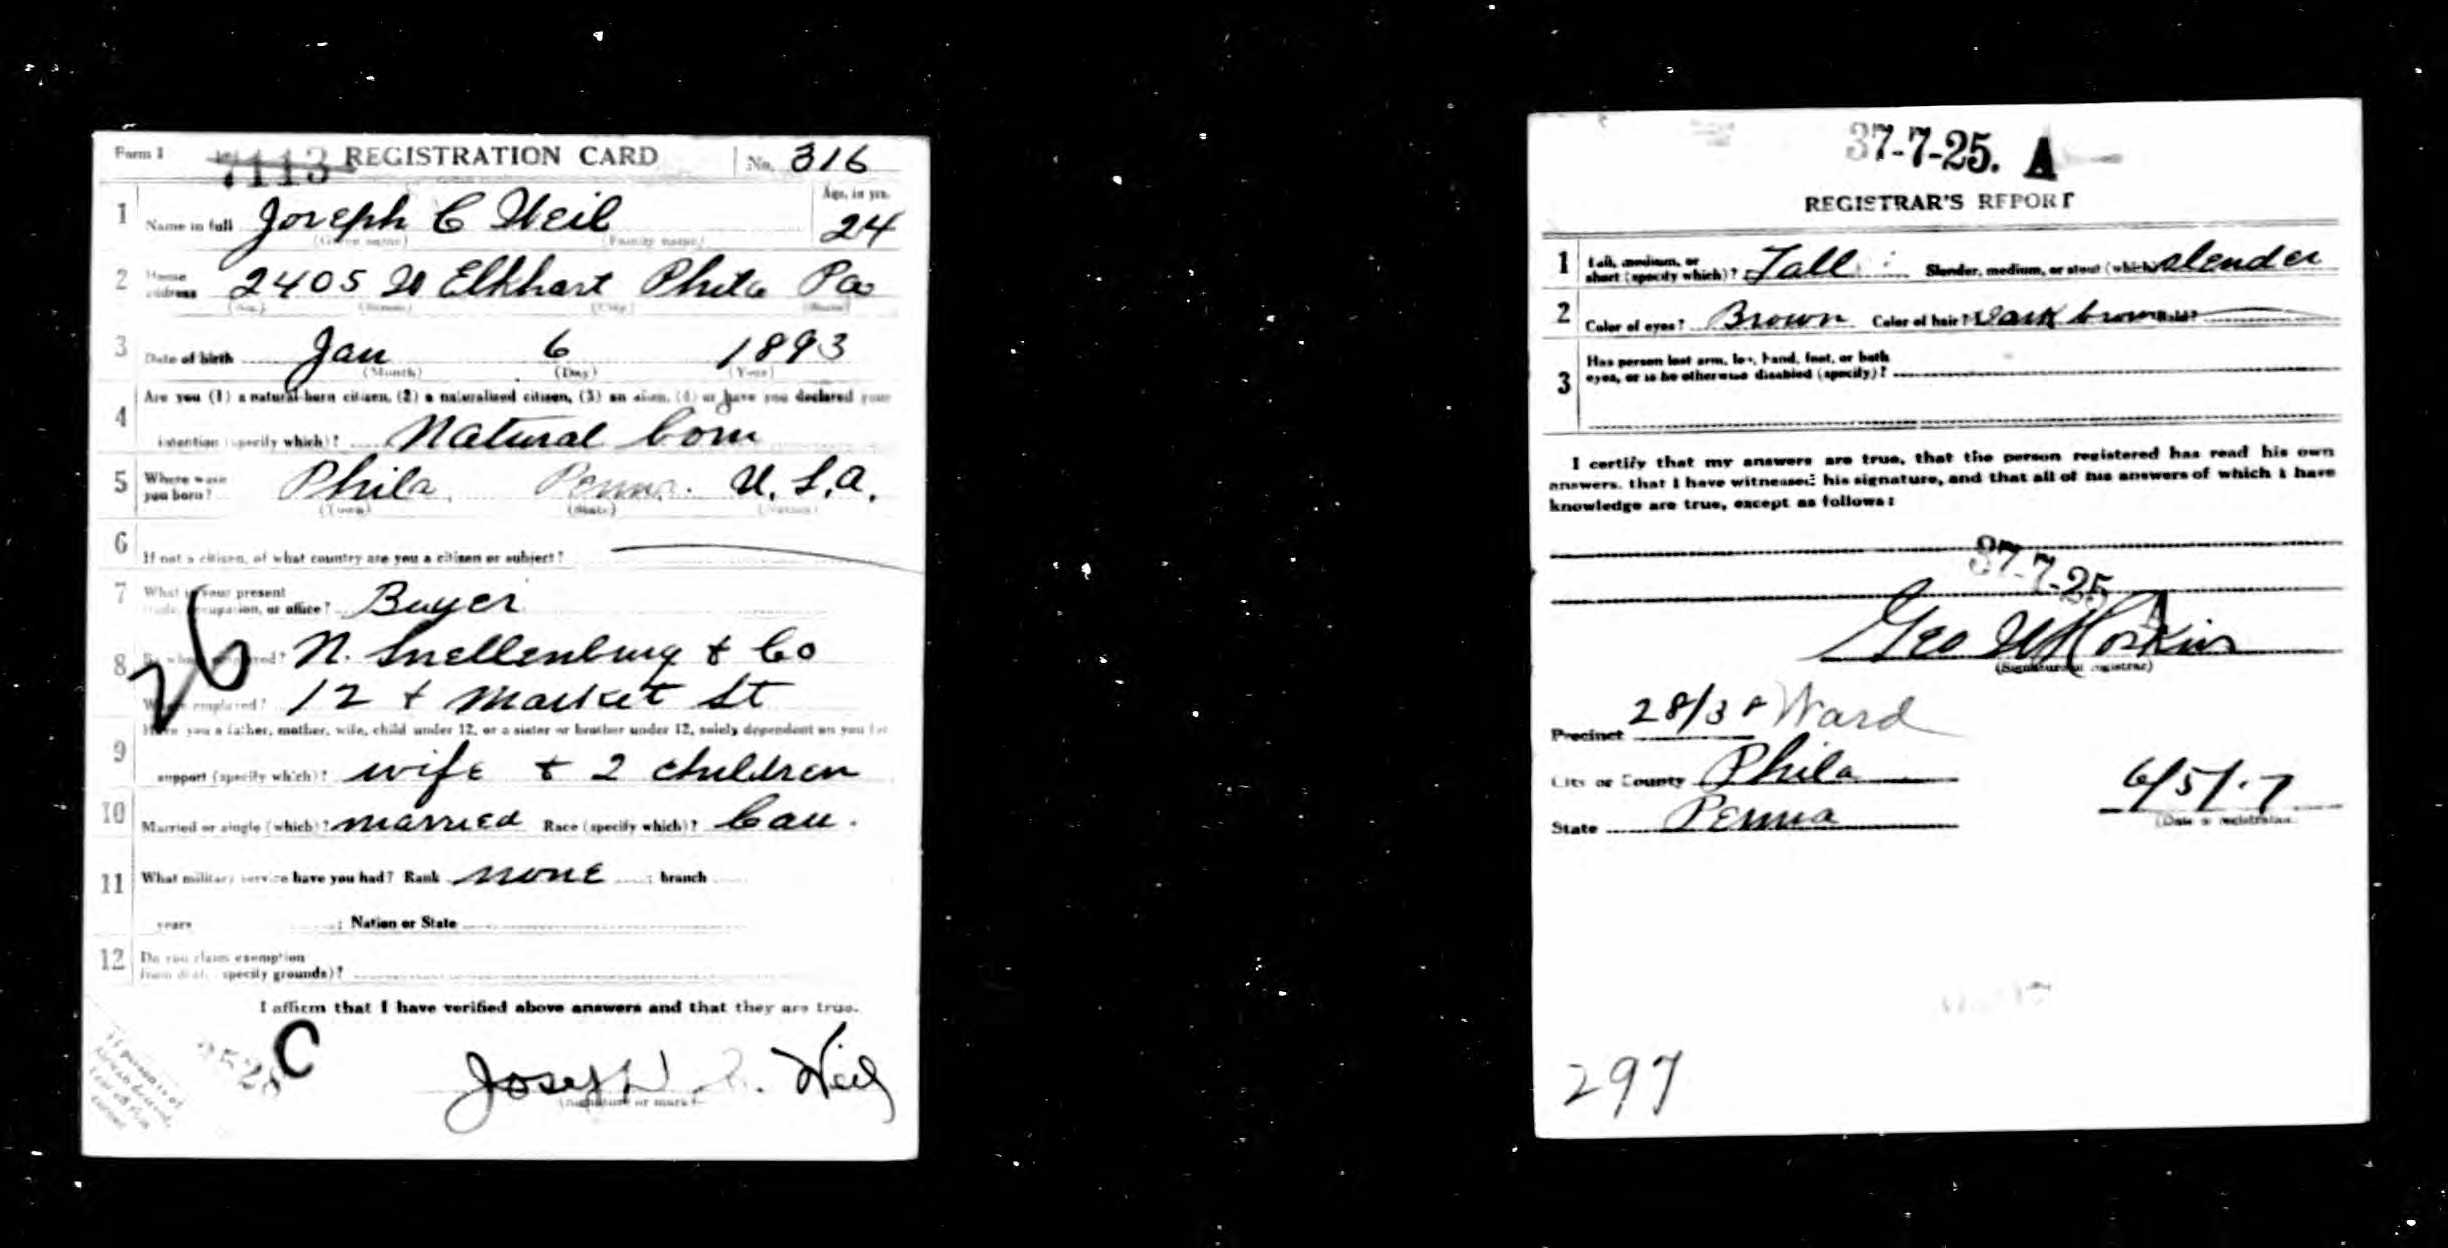 Form 1 7113 REGISTRATION CARD No. 316
1 Name in full Joseph C Weil Age, in yrs. 24
(Given name) (Family name)
2 Home address 2405 W Elkhart Phila Pa
(No.) (Street) (City) (State)
3 Date of birth Jan 6 1893
(Month) (Day) (Year)
4 Are you (1) a natural-born citizen, (2) a naturalized citizen, (3) an alien, (4) or have you declared your
intention (specify which)? Natural born
5 Where were you born? Phila. Penna. U.S.A.
(Town) (State) (Nation)
6 If not a citizen, of what country are you a citizen or subject?
7 What is your present
trade, occupation, or office? Buyer
8 By whom employed? N. Snellenburg & Co
Where employed? 12 & Market St
26
9 Have you a father, mother, wife, child under 12, or a sister or brother under 12, solely dependent on you for
support (specify which)? wife & 2 children
10 Married or single (which)? married Race (specify which)? Cau.
11 What military service have you had? Rank none ; branch
years ; Nation or State
12 Do you claim exemption
from draft (specify grounds)?
I affirm that I have verified above answers and that they are true.
C
Joseph C. Weil
(Signature or mark)
If person is of
African descent,
tear off this
corner
37-7-25. A
REGISTRAR'S REPORT
1 Tall, medium, or
short (specify which)? Tall Slender, medium, or stout (which)? slender
2 Color of eyes? Brown Color of hair? Dark brown Bald?
3 Has person lost arm, leg, hand, foot, or both
eyes, or is he otherwise disabled (specify)?
I certify that my answers are true, that the person registered has read his own
answers, that I have witnessed his signature, and that all of his answers of which I have
knowledge are true, except as follows:
37-7-25 A
Geo W Hoskins
(Signature of registrar)
Precinct 28/38 Ward
City or County Phila
State Penna
6/5/17
(Date of registration)
297